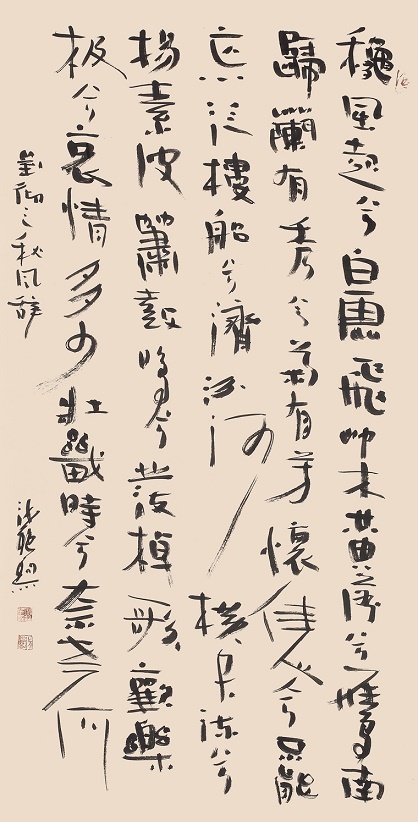 穐風起兮白雲飛草木黄落兮雁南
歸蘭有秀兮菊有芳懷佳人兮不能
忘泛樓船兮濟汾河橫中流兮
揚素波簫鼓鳴兮發棹歌歡樂
極兮哀情多少壯幾時兮奈老何
劉徹之秋風辭